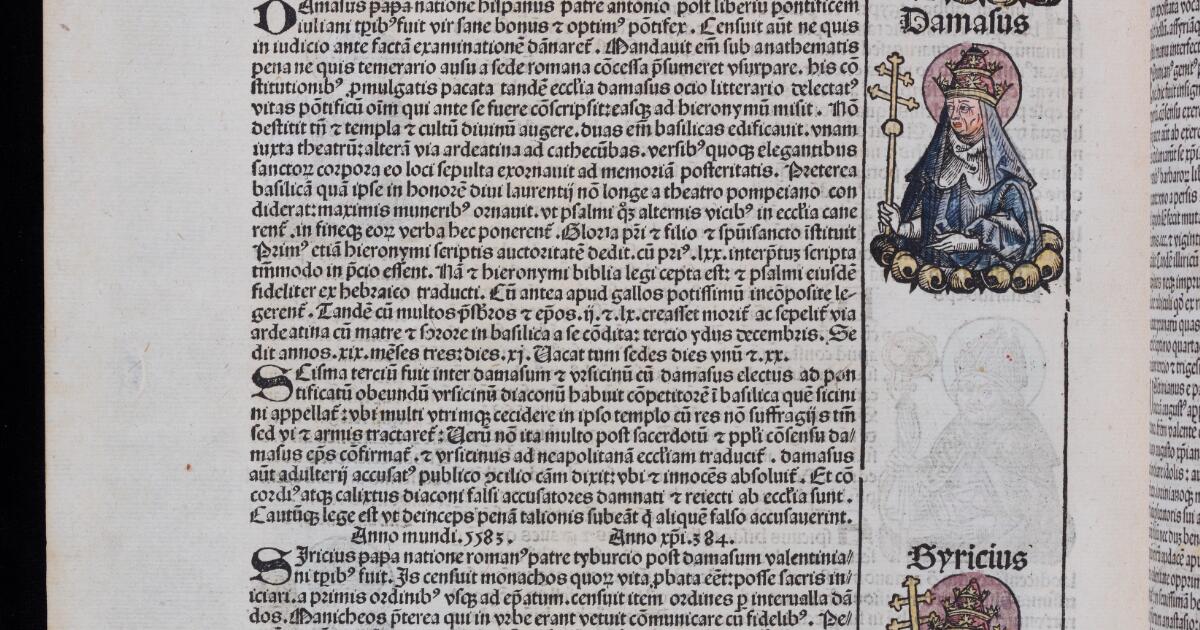 DAmasus papa natione hispanus patre antonio post liberiũ pontificem
iuliani tpibꝰ fuit vir sane bonus ⁊ optimꝰ põtifex. Censuit aũt ne quis
in iudicio ante factã examinationẽ dãnaret̃. Mandauit em̃ sub anathematis
pena ne quis temerario ausu a sede romana cõcessa p̃sumeret vsurpare. his cõ
stitutionibꝰ ꝓmulgatis pacata tandẽ eccl̃ia damasus ocio litterario delectatꝰ
vitas põtificũ oim̃ qui ante se fuere cõscripsit: easq̃ ad hieronymũ misit. Nõ
destitit tñ ⁊ templa ⁊ cultũ diuinũ augere. duas em̃ basilicas edificauit. vnam
iuxta theatrũ: alterã via ardeatina ad cathecũbas. versibꝰ quoqꝫ elegantibus
sanctoꝝ corpora eo loci sepulta exornauit ad memoriã posteritatis. Preterea
basilicã quã ipse in honorẽ diui laurentij nõ longe a theatro pompeiano con
diderat: maximis muneribꝰ ornauit. vt psalmi qͦꝫ alternis vicibꝰ in eccl̃ia cane
rent̃. in fineqꝫ eoꝝ verba hec ponerent̃. Gloria pr̃i ⁊ filio ⁊ sp̃uisancto ĩstituit
Primꝰ etiã hieronymi scriptis auctoritatẽ dedit. cũ priꝰ .lxx. interp̃tuꝫ scripta
tm̃modo in p̃cio essent. Nã ⁊ hieronymi biblia legi cepta est: ⁊ psalmi eiusdẽ
fideliter ex hebraico traducti. Cũ antea apud gallos potissimũ incõposite le-
gerent̃. Tandẽ cũ multos p̃sb̃ros ⁊ ep̃os .ij. ⁊ .lx. creasset morit̃ ac sepelit̃ via
ardeatina cũ matre ⁊ sorore in basilica a se cõdita: tercio ydus decembris. Se
dit annos .xix. mẽses tres: dies .xj. Uacat tum sedes dies vnũ ⁊ .xx.
SCisma terciũ fuit inter damasum ⁊ vrsicinũ cũ damasus electus ad pon
tificatũ obeundũ vrsicinũ diaconũ habuit cõpetitorẽ ĩ basilica quẽ sicini
ni appellãt: vbi multi vtrimqꝫ cecidere in ipso templo cũ res nõ suffragijs tm̃
sed vi ⁊ armis tractaret̃: Uerũ nõ ita multo post sacerdotũ ⁊ ppl̃i cõsensu da/
masus ep̃s cõfirmat̃. ⁊ vrsicinus ad neapolitanã eccl̃iam traducit̃. damasus
aũt adulterij accusatꝰ publico ꝯcilio cãm dixit: vbi ⁊ innocẽs absoluit̃. Et cõ
cordiꝰ atqꝫ calixtus diaconi falsi accusatores damnati ⁊ reiecti ab eccl̃ia sunt.
Cautũqꝫ lege est vt deinceps penã talionis subeãt q̃ aliquẽ falso accusauerint.
Anno mundi. 5583. Anno xp̃i. 384.
SJricius papa natione romanꝰ patre tyburcio post damasum valentinia/
ni tpibꝰ fuit. Js censuit monachos quoꝝ vita ꝓbata eẽt: posse sacris in/
iciari. a primis ordinibꝰ vsqꝫ ad ep̃atum. censuit item ordines ꝑ interualla dã
dos. Manicheos p̃terea qui in vrbe erant vetuit cõmunicare cũ fidelibꝰ. Pe/
Damasus
Syricius